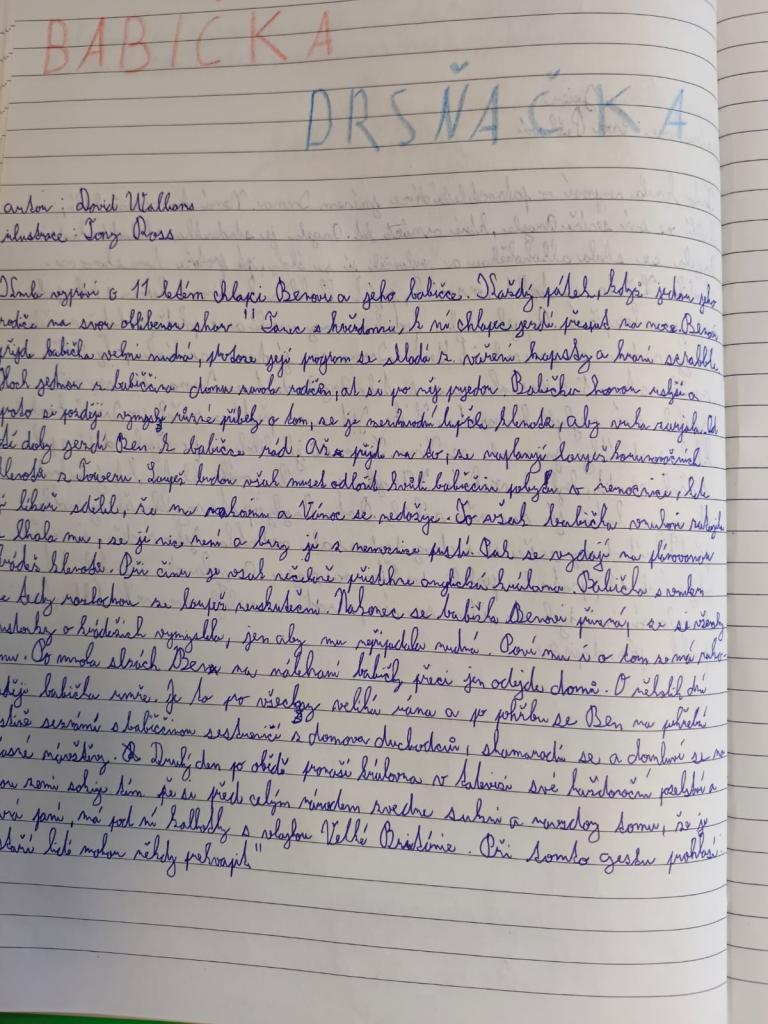 BABIČKA
DRSŇAČKA
autor : David Walliams
ilustrace : Tony Ross
Kniha vypráví o 11 letém chlapci Benovi a jeho babičce. Každý pátek, když jedou jeho
rodiče na svou oblíbenou show "Tanec s hvězdami, k ní chlapec jezdí přespat na noc. Benovi
přijde babička velmi nudná, protože její program se skládá z vaření kapusty a hraní scrabble
Hoch jednou z babiččina domu zavolá rodičům, ať si po něj přijedou. Babička hovor uslyší a
proto si později vymyslí různé příběhy o tom, že je mezinárodní lupička klenotů, aby vnuka zaujala. Od
té doby jezdí Ben k babičce rád. Až přijde na to, že naplánují loupež korunovačních
klenotů z Toweru. Loupež budou však muset odložit kvůli babiččinu pobytu v nemocnici, kde
jí lékař sdělil, že má rakovinu a Vánoc se nedožije. To však babička vnukovi
lhala mu, že jí nic není a brzy jí z nemocnice pustí. Pak se vydají na plánovanou
krádež klenotů. Při činu je však nečekaně přistihne anglická královna. Babička s vnukem
se tedy rozhodnou že loupež neuskuteční. Nakonec se babička Benovi přizná, že si všechny
historky o krádežích vymyslela, jen aby mu nepřipadala nudná. Poví mu i o tom že má rako-
vinu. Po mnoha slzách Ben na naléhání babičky přeci jen odejde domů. O několik dní
později babička umře. Je to pro všechny veliká rána a po pohřbu se Ben na pohřební
hostině seznámí s babiččinou sestřenicí z domova duchodců, skamarádí se a domluví se na
časné návštěvy. Druhý den po obědě pronáší královna v televizi své každoroční poselství a
celou zemi šokuje tím že si před celým národem zvedne sukni a navzdory tomu, že je
stará paní, má pod ní kalhotky s vlajkou Velké Británie. Při tomto gestu prohlásí:
staří lidé mohou někdy překvapit"